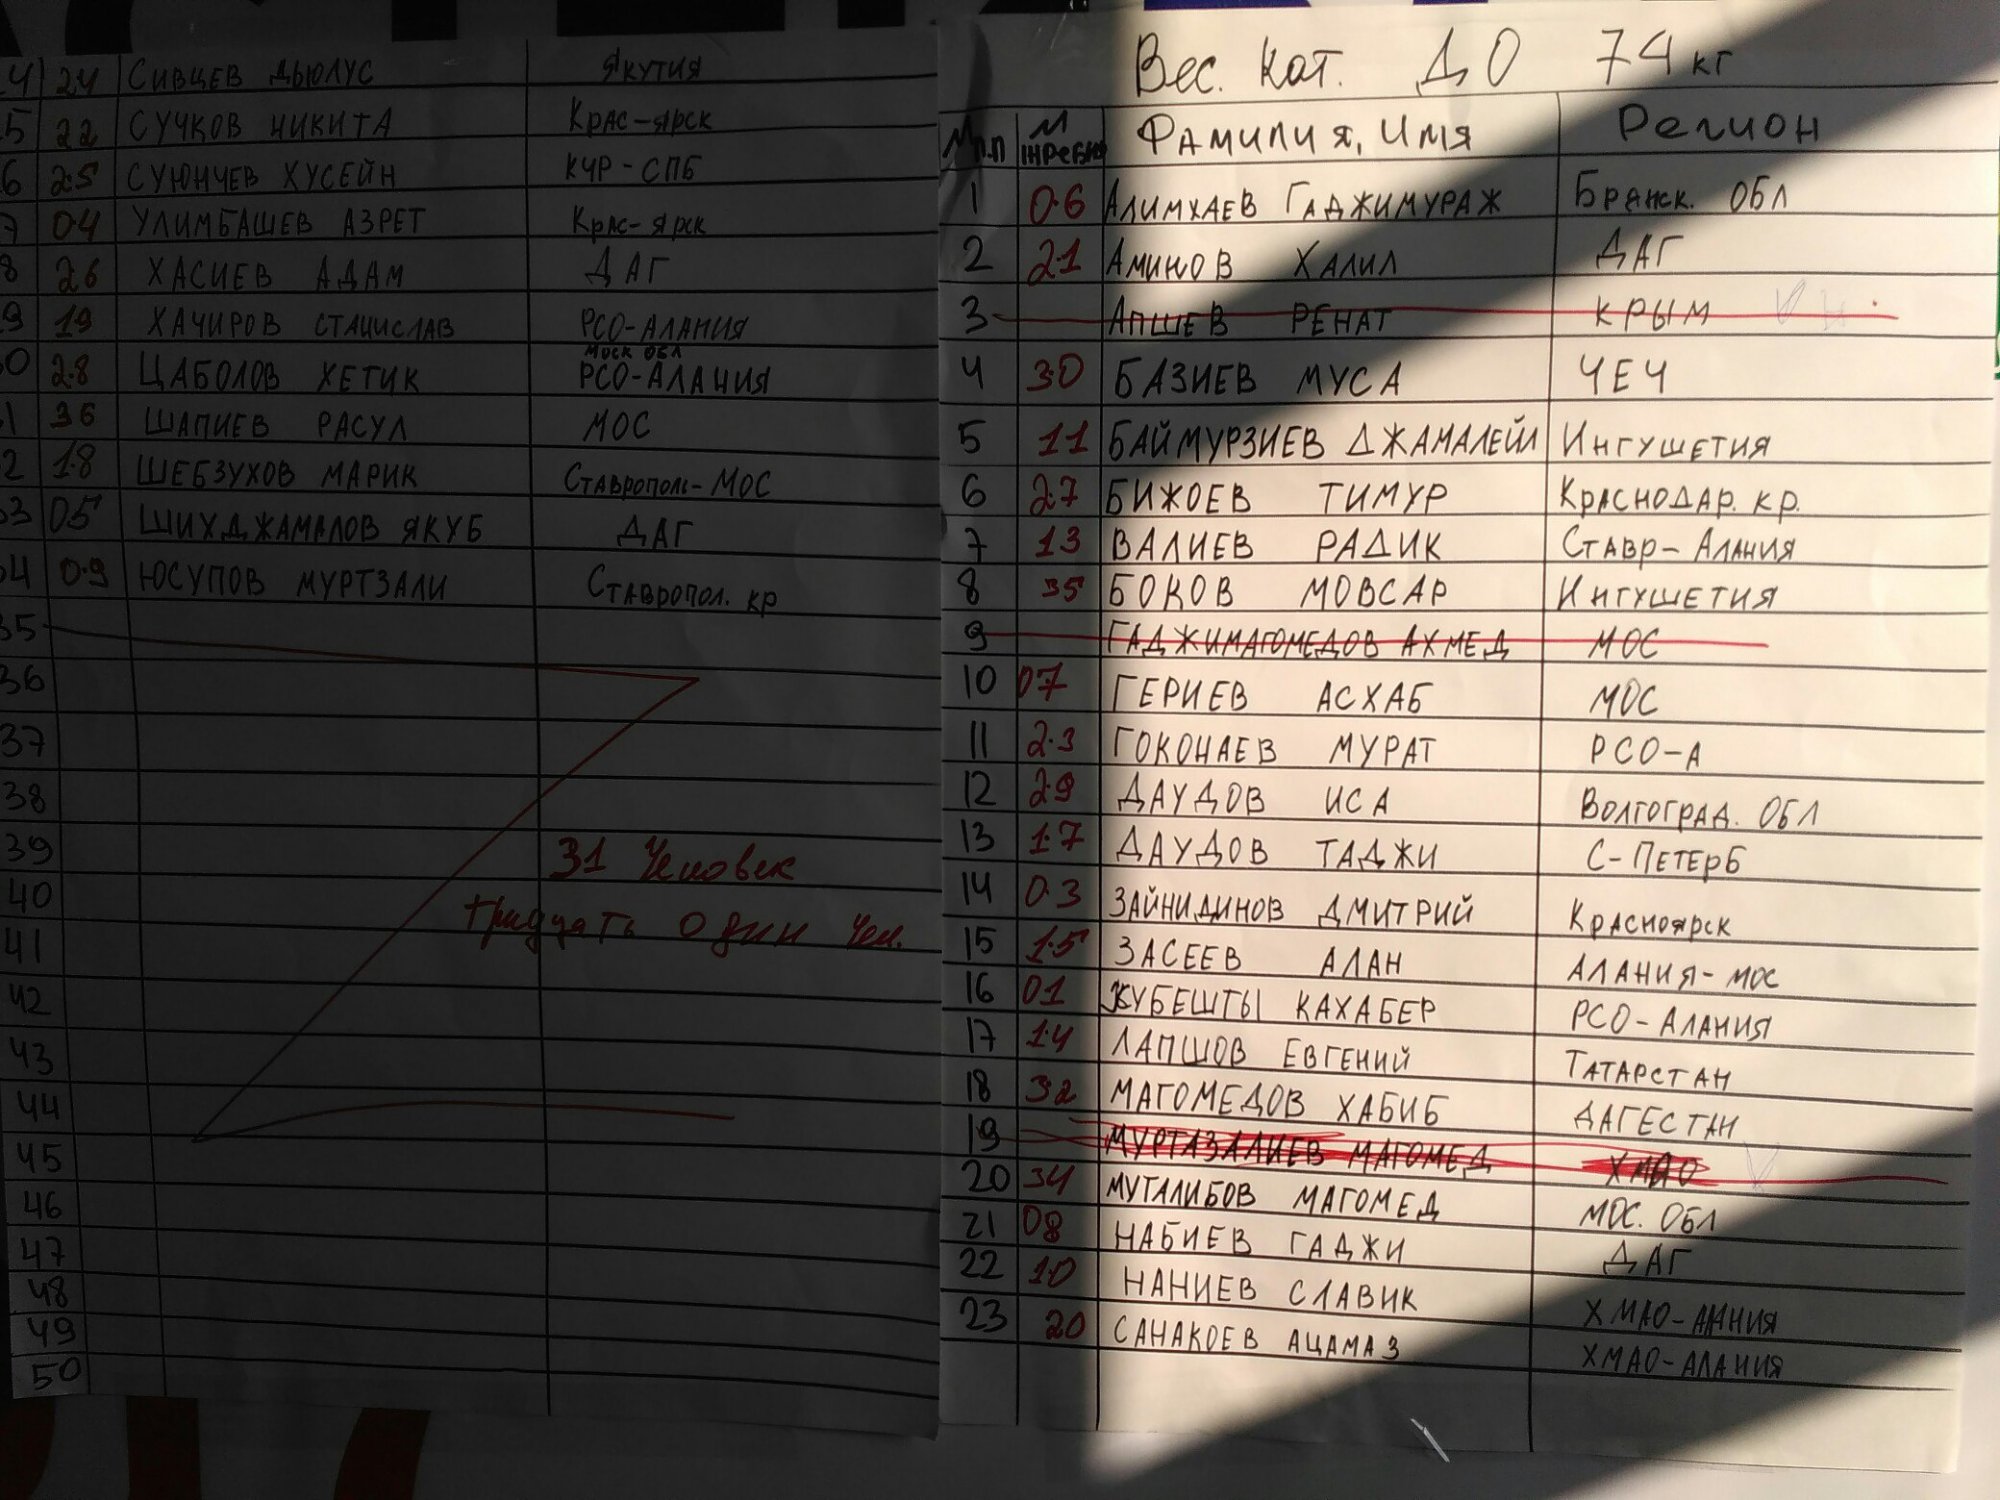 Вес. Кат. ДО 74 кг
№ п.п № жребия Фамилия, Имя Регион
1 06 Алимхаев Гаджимураж Брянск. обл
2 21 Аминов Халил ДАГ
3 Апшев Ренат Крым
4 30 Базиев Муса ЧЕЧ
5 11 Баймурзиев Джамалейл Ингушетия
6 27 Бижоев Тимур Краснодар. кр.
7 13 Валиев Радик Ставр-Алания
8 35 Боков Мовсар Ингушетия
9 Гаджимагомедов Ахмед МОС
10 07 Гериев Асхаб МОС
11 23 Гоконаев Мурат РСО-А
12 29 Даудов Иса Волгоград. обл
13 17 Даудов Таджи С-Петерб
14 03 Зайнидинов Дмитрий Красноярск
15 15 Засеев Алан Алания-мос
16 01 Хубешты Кахабер РСО-Алания
17 14 Лапшов Евгений Татарстан
18 32 Магомедов Хабиб Дагестан
19 Муртазалиев Магомед ХМАО
20 34 Муталибов Магомед Мос. обл
21 08 Набиев Гаджи ДАГ
22 10 Наниев Славик ХМАО-Алания
23 20 Санакоев Ацамаз ХМАО-Алания
24 Сивцев Дьюлус Якутия
5 22 Сучков Никита Крас-ярск
6 25 Суюнчев Хусейн КЧР-СПБ
7 04 Улимбашев Азрет Крас-ярск
8 26 Хасиев Адам ДАГ
9 19 Хачиров Станислав РСО-Алания
Моск обл
0 28 Цаболов Хетик РСО-Алания
1 36 Шапиев Расул МОС
2 18 Шебзухов Марик Ставрополь-МОС
3 05 Шихджамалов Якуб ДАГ
4 09 Юсупов Муртзали Ставропол. кр
35
36
37
38
39
31 Человек
40
тридцать один чел.
41
42
43
44
45
46
47
48
49
50